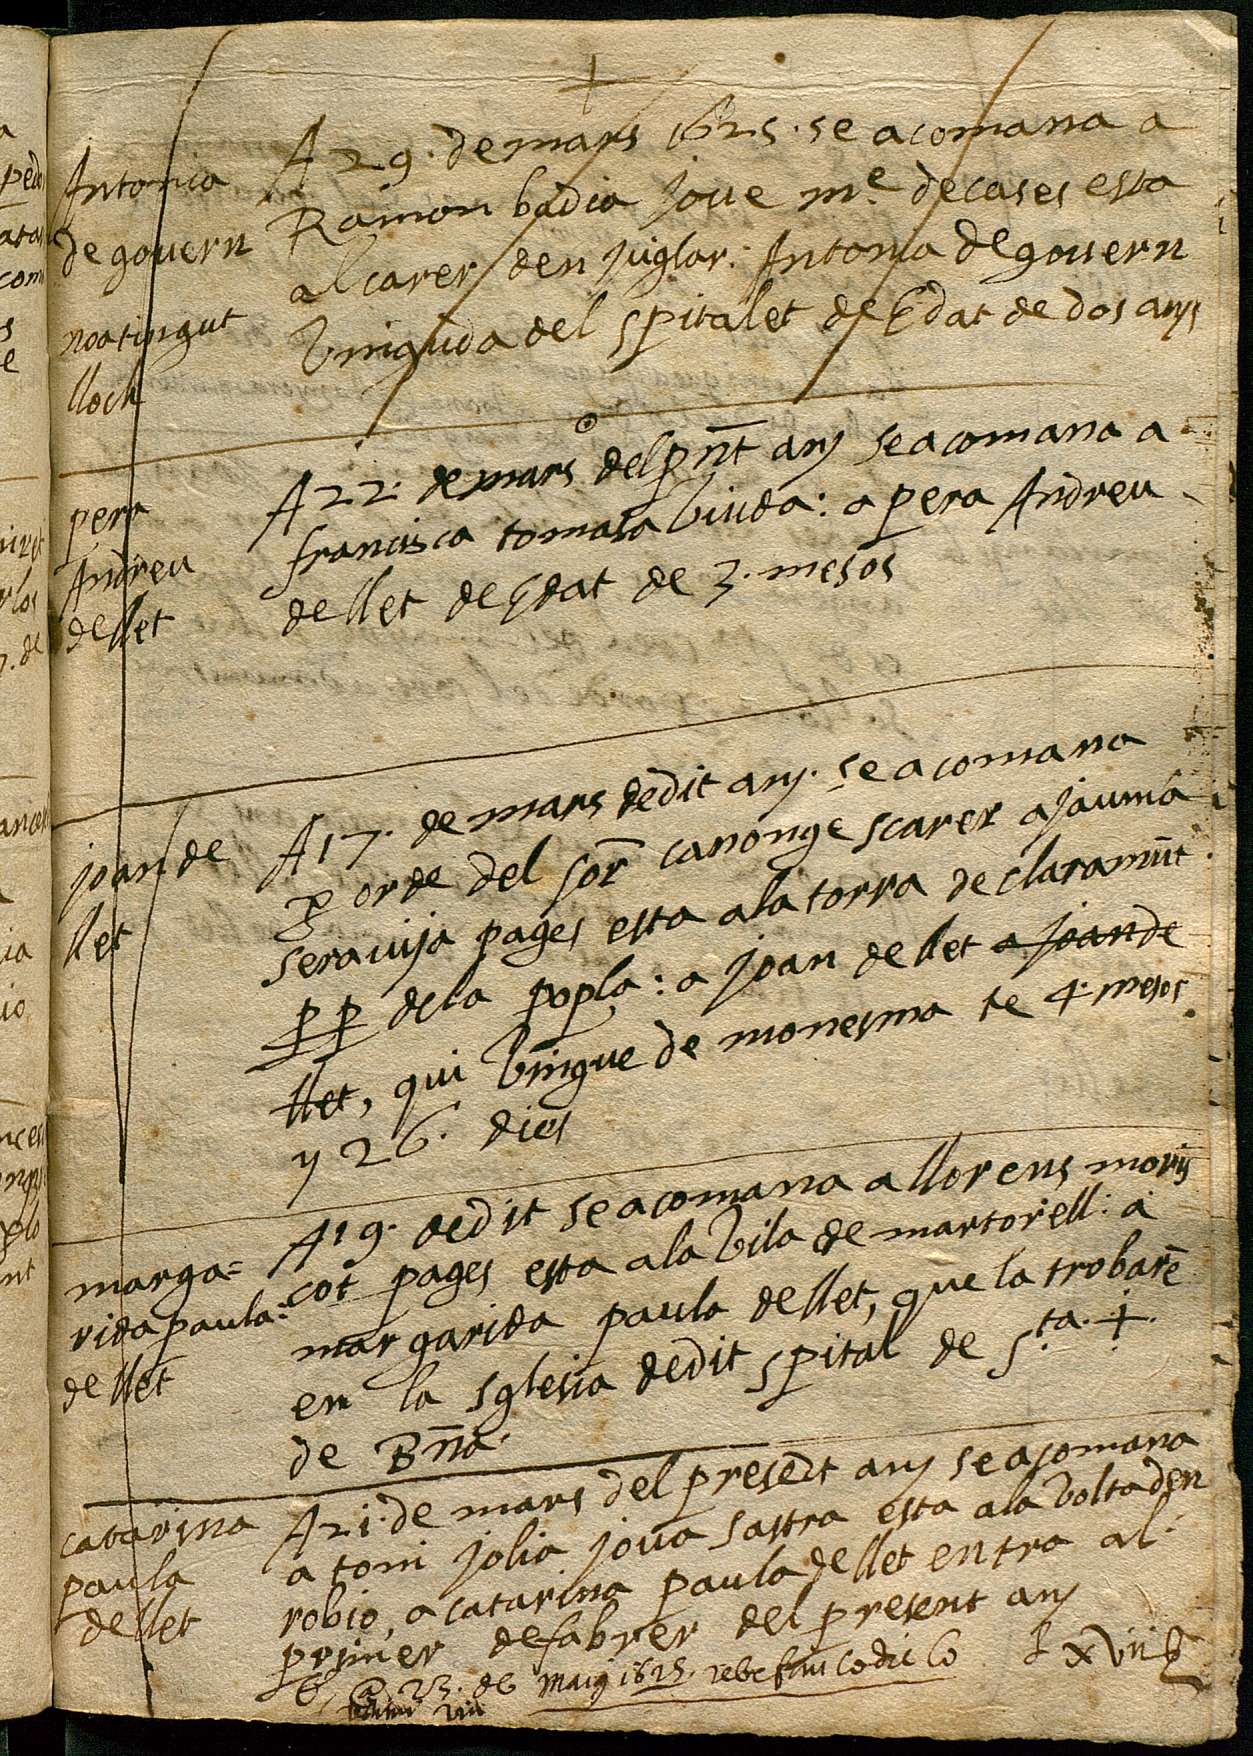 Antonia
de govern
noatingut
lloch
A 29. de mars 1625. se acomana a
Ramon badia jove mᵉ. de cases esta
al carer den juglar: Antonia de govern
vinguda del spitalet de Edat de dos anys
pera
Andreu
de llet
A 22. de mars del pñt any se acomana a
francisca tomasa viuda: a pera Andreu
de llet de Edat de 3. mesos
joan de
llet
A 17. de mars de dit any. se acomana
p orde del sor̃ canonge scarer a jauma
seravija pages esta a la torra de claramũt
pp de la popla: a joan de llet a joan de
llet, qui vingue de monesma te 4. mesos
y 26. dies
marga=
rida paula:
de llet
A 19. de dit se acomana a llorens moris
cot pages esta a la vila de martorell: a
margarida paula de llet, que la trobarẽ
en la sglesia de dit spital de S.ta. +.
de Bña.
catarina
paula
de llet
A 21. de mars del present any se acomana
a toni jolia jova sastra esta a la volta den
robio, a catarina paula de llet entra al
primer de fabrer del present any
@ 23. de maig 1625. rebe